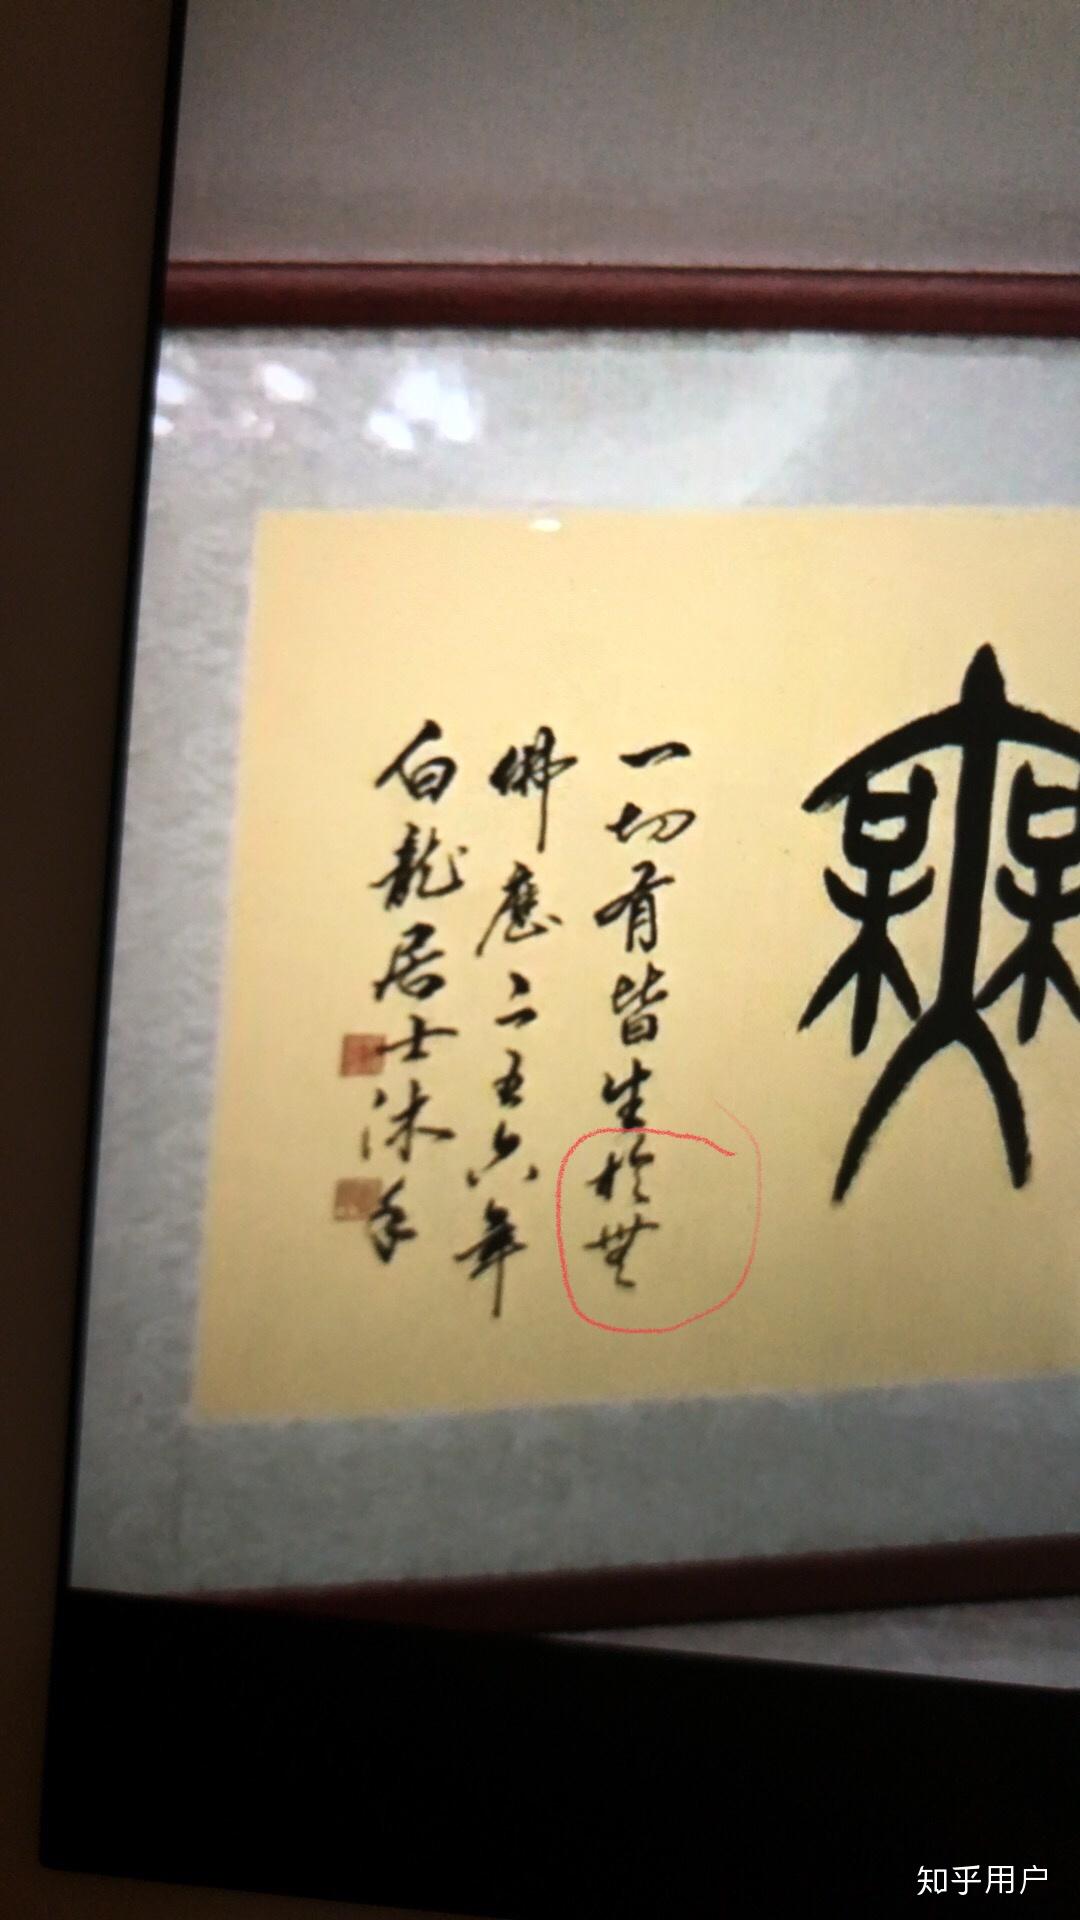 無
一切有皆生於無
佛應二五六年
白龍居士沐手
知乎用户